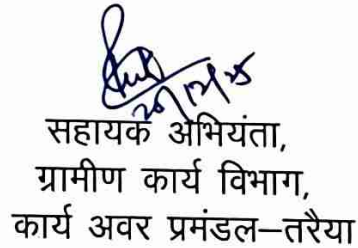 सहायक अभियंता,
ग्रामीण कार्य विभाग,
कार्य अवर प्रमंडल–तरैया